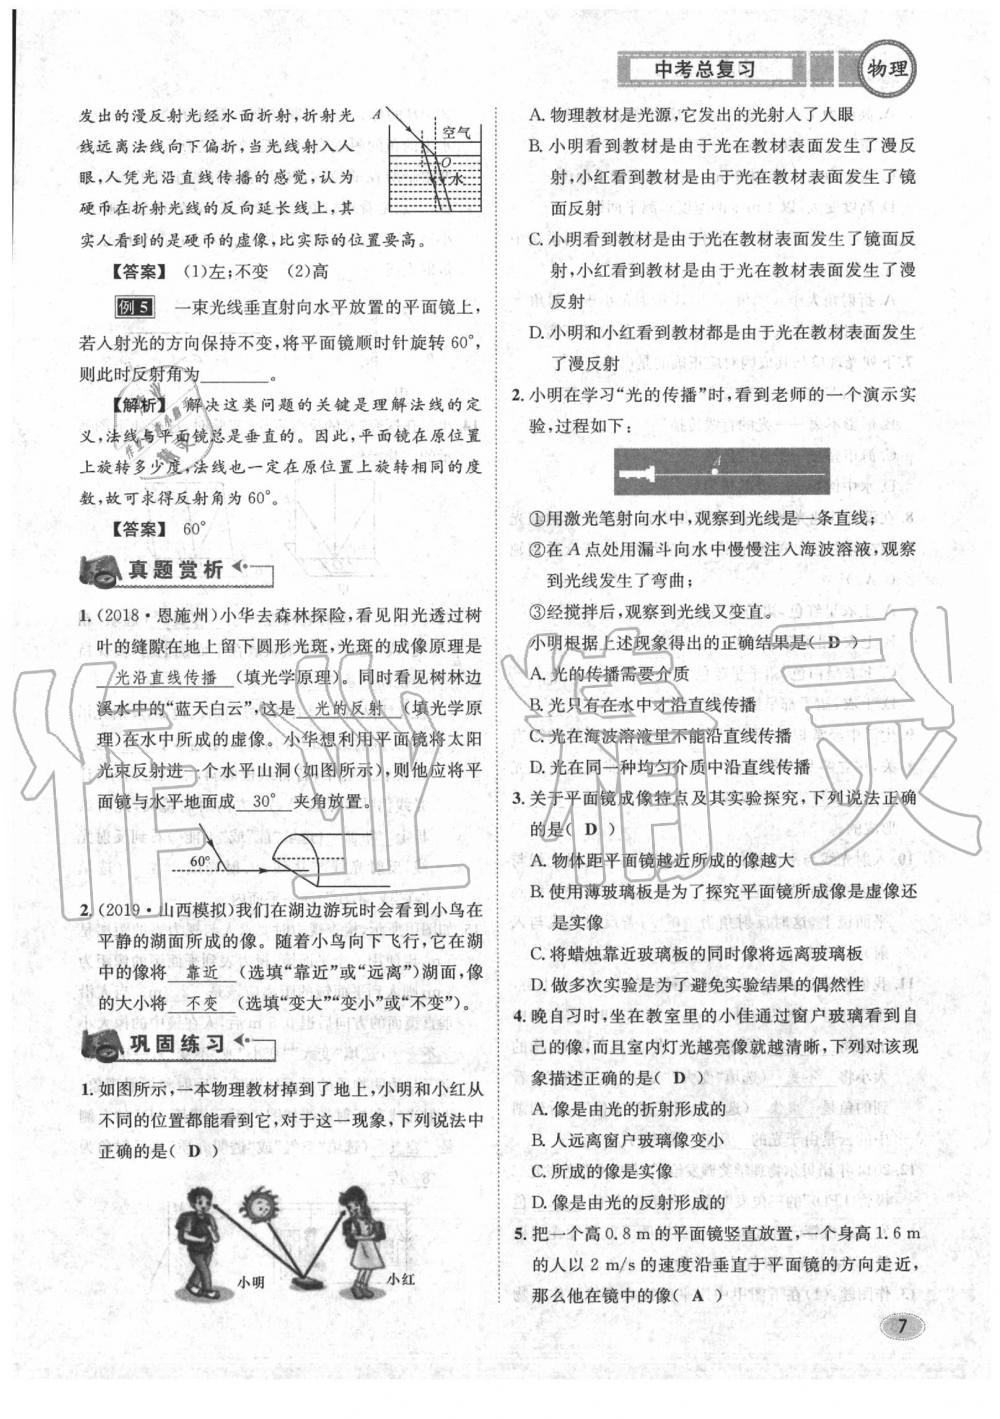 中考总复习
物理
发出的漫反射光经水面折射,折射光
线远离法线向下偏折,当光线射入人
眼,人凭光沿直线传播的感觉,认为
硬币在折射光线的反向延长线上,其
实人看到的是硬币的虚像,比实际的位置要高。
A
空气
O
水
【答案】 (1)左;不变 (2)高
例5 一束光线垂直射向水平放置的平面镜上,
若入射光的方向保持不变,将平面镜顺时针旋转60°,
则此时反射角为________。
【解析】 解决这类问题的关键是理解法线的定
义,法线与平面镜总是垂直的。因此,平面镜在原位置
上旋转多少度,法线也一定在原位置旋转相同的度
数,故可求得反射角为60°。
【答案】 60°
真题赏析
1.(2018·恩施州)小华去森林探险,看见阳光透过树
叶的缝隙在地上留下圆形光斑,光斑的成像原理是
光沿直线传播 (填光学原理)。同时看见树林边
溪水中的“蓝天白云”,这是 光的反射 (填光学原
理)在水中所成的虚像。小华想利用平面镜将太阳
光束反射进一个水平山洞(如图所示),则他应将平
面镜与水平地面成 30° 夹角放置。
60°
2.(2019·山西模拟)我们在湖边游玩时会看到小鸟在
平静的湖面所成的像。随着小鸟向下飞行,它在湖
中的像将 靠近 (选填“靠近”或“远离”)湖面,像
的大小将 不变 (选填“变大”“变小”或“不变”)。
巩固练习
1. 如图所示,一本物理教材掉到了地上,小明和小红从
不同的位置都能看到它,对于这一现象,下列说法中
正确的是( D )
小明
小红
A. 物理教材是光源,它发出的光射入了人眼
B. 小明看到教材是由于光在教材表面发生了漫反
射,小红看到教材是由于光在教材表面发生了镜
面反射
C. 小明看到教材是由于光在教材表面发生了镜面反
射,小红看到教材是由于光在教材表面发生了漫
反射
D. 小明和小红看到教材都是由于光在教材表面发生
了漫反射
2. 小明在学习“光的传播”时,看到老师的一个演示实
验,过程如下:
A
①用激光笔射向水中,观察到光线是一条直线;
②在 A 点处用漏斗向水中慢慢注入海波溶液,观察
到光线发生了弯曲;
③经搅拌后,观察到光线又变直。
小明根据上述现象得出的正确结果是( D )
A. 光的传播需要介质
B. 光只有在水中才沿直线传播
C. 光在海波溶液里不能沿直线传播
D. 光在同一种均匀介质中沿直线传播
3. 关于平面镜成像特点及其实验探究,下列说法正确
的是( D )
A. 物体距平面镜越近所成的像越大
B. 使用薄玻璃板是为了探究平面镜所成像是虚像还
是实像
C. 将蜡烛靠近玻璃板的同时像将远离玻璃板
D. 做多次实验是为了避免实验结果的偶然性
4. 晚自习时,坐在教室里的小佳通过窗户玻璃看到自
己的像,而且室内灯光越亮像就越清晰,下列对该现
象描述正确的是( D )
A. 像是由光的折射形成的
B. 人远离窗户玻璃像变小
C. 所成的像是实像
D. 像是由光的反射形成的
5. 把一个高0.8 m的平面镜竖直放置,一个身高1.6 m
的人以2 m/s的速度沿垂直于平面镜的方向走近,
那么他在镜中的像( A )
7
作业精灵